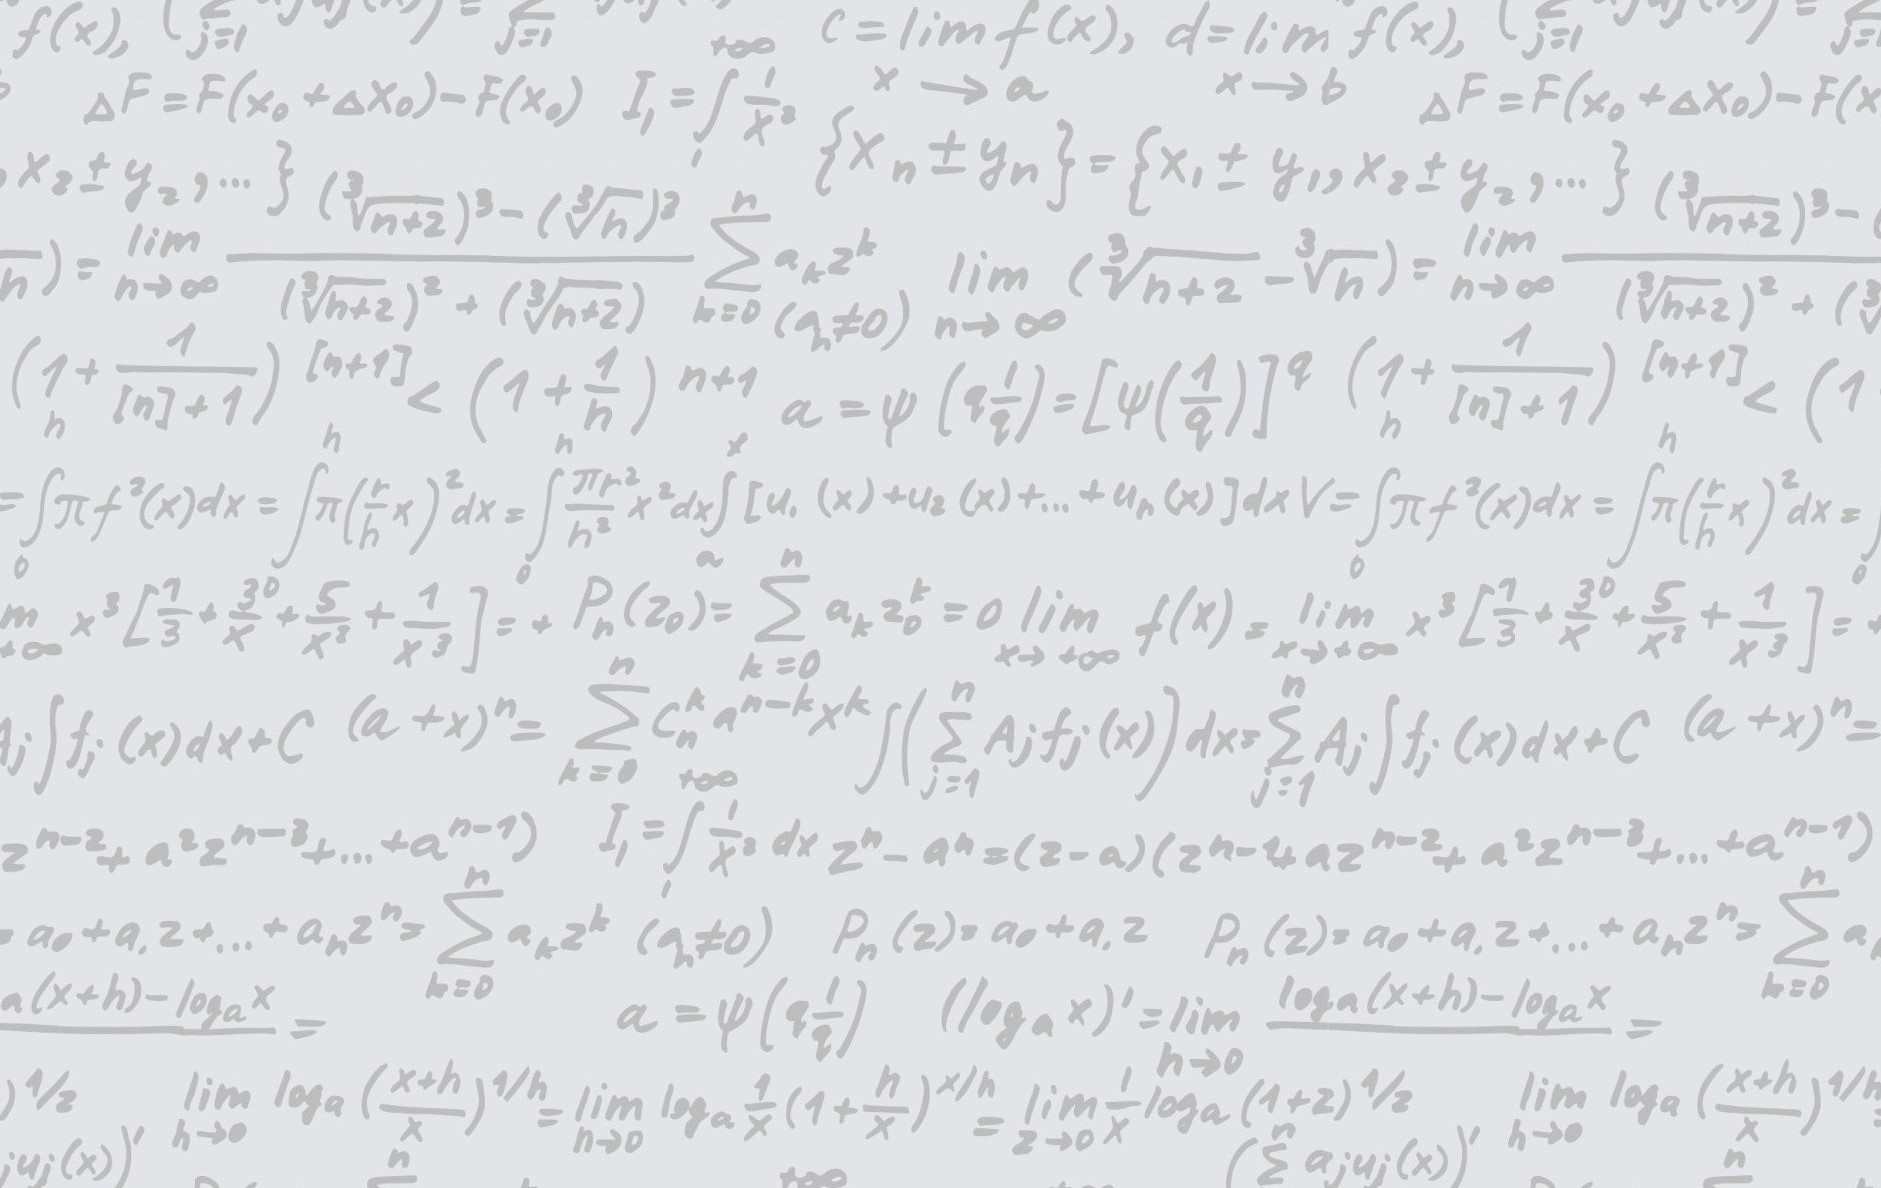 f(x), (∑ j=1 = ∑ j=1 +∞ c = lim x→a f(x), d = lim x→b f(x), (∑ j=1 = ∑ j=1
ΔF = F(x₀ + Δx₀) − F(x₀) I₁ = ∫₁ 1/x² ΔF = F(x₀ + Δx₀) − F(x
, x₂ ± y₂, ... } {xₙ ± yₙ} = {x₁ ± y₁, x₂ ± y₂, ... }
h) = lim n→∞ ((∛n+2)³ − (∛h)³) / ((∛h+2)² + (∛n+2)) ∑ k=0 n aₖzᵏ (aₙ≠0) lim n→∞ (∛n+2 − ∛n) = lim n→∞ (∛n+2)³ − ( / (∛h+2)² + (
(1 + 1/([n]+1))^[n+1] < (1 + 1/h)^n+1 a = ψ(q 1/q) = [ψ(1/q)]^q (1 + 1/([n]+1))^[n+1] < (1
= ∫₀ʰ πf²(x)dx = ∫ʰ π(r/h x)²dx = ∫₀ⁿ πr²/h² x²dx ∫ₐˣ [u₁(x) + u₂(x) + ... + uₙ(x)]dx V = ∫₀ʰ πf²(x)dx = ∫ʰ π(r/h x)²dx = ∫₀
m +∞ x³[1/3 + 3⁰/x + 5/x² + 1/x³] = + Pₙ(z₀) = ∑ k=0 n aₖz₀ᵏ = 0 lim x→+∞ f(x) = lim x→+∞ x³[1/3 + 3⁰/x + 5/x² + 1/x³] = +
Aⱼ∫fⱼ(x)dx + C (a + x)ⁿ = ∑ k=0 n Cₙᵏ aⁿ⁻ᵏxᵏ ∫(∑ j=1 n Aⱼfⱼ(x))dx = ∑ j=1 n Aⱼ∫fⱼ(x)dx + C (a + x)ⁿ =
zⁿ⁻² + a²zⁿ⁻³ + ... + aⁿ⁻¹) I₁ = ∫₁^+∞ 1/x² dx zⁿ − aⁿ = (z − a)(zⁿ⁻¹ + azⁿ⁻² + a²zⁿ⁻³ + ... + aⁿ⁻¹)
= a₀ + a₁z + ... + aₙzⁿ = ∑ k=0 n aₖzᵏ (aₙ≠0) Pₙ(z) = a₀ + a₁z Pₙ(z) = a₀ + a₁z + ... + aₙzⁿ = ∑ k=0 n a
a(x+h) − logₐx = a = ψ(q 1/q) (logₐx)' = lim h→0 logₐ(x+h) − logₐx =
)^1/2 lim h→0 logₐ((x+h)/x)^1/h = lim h→0 logₐ 1/x (1 + h/x)^x/h = lim z→0 1/x logₐ(1+z)^1/2 lim h→0 logₐ((x+h)/x)^1/h
ⱼuⱼ(x))' n +∞ (∑ n aⱼuⱼ(x))' n